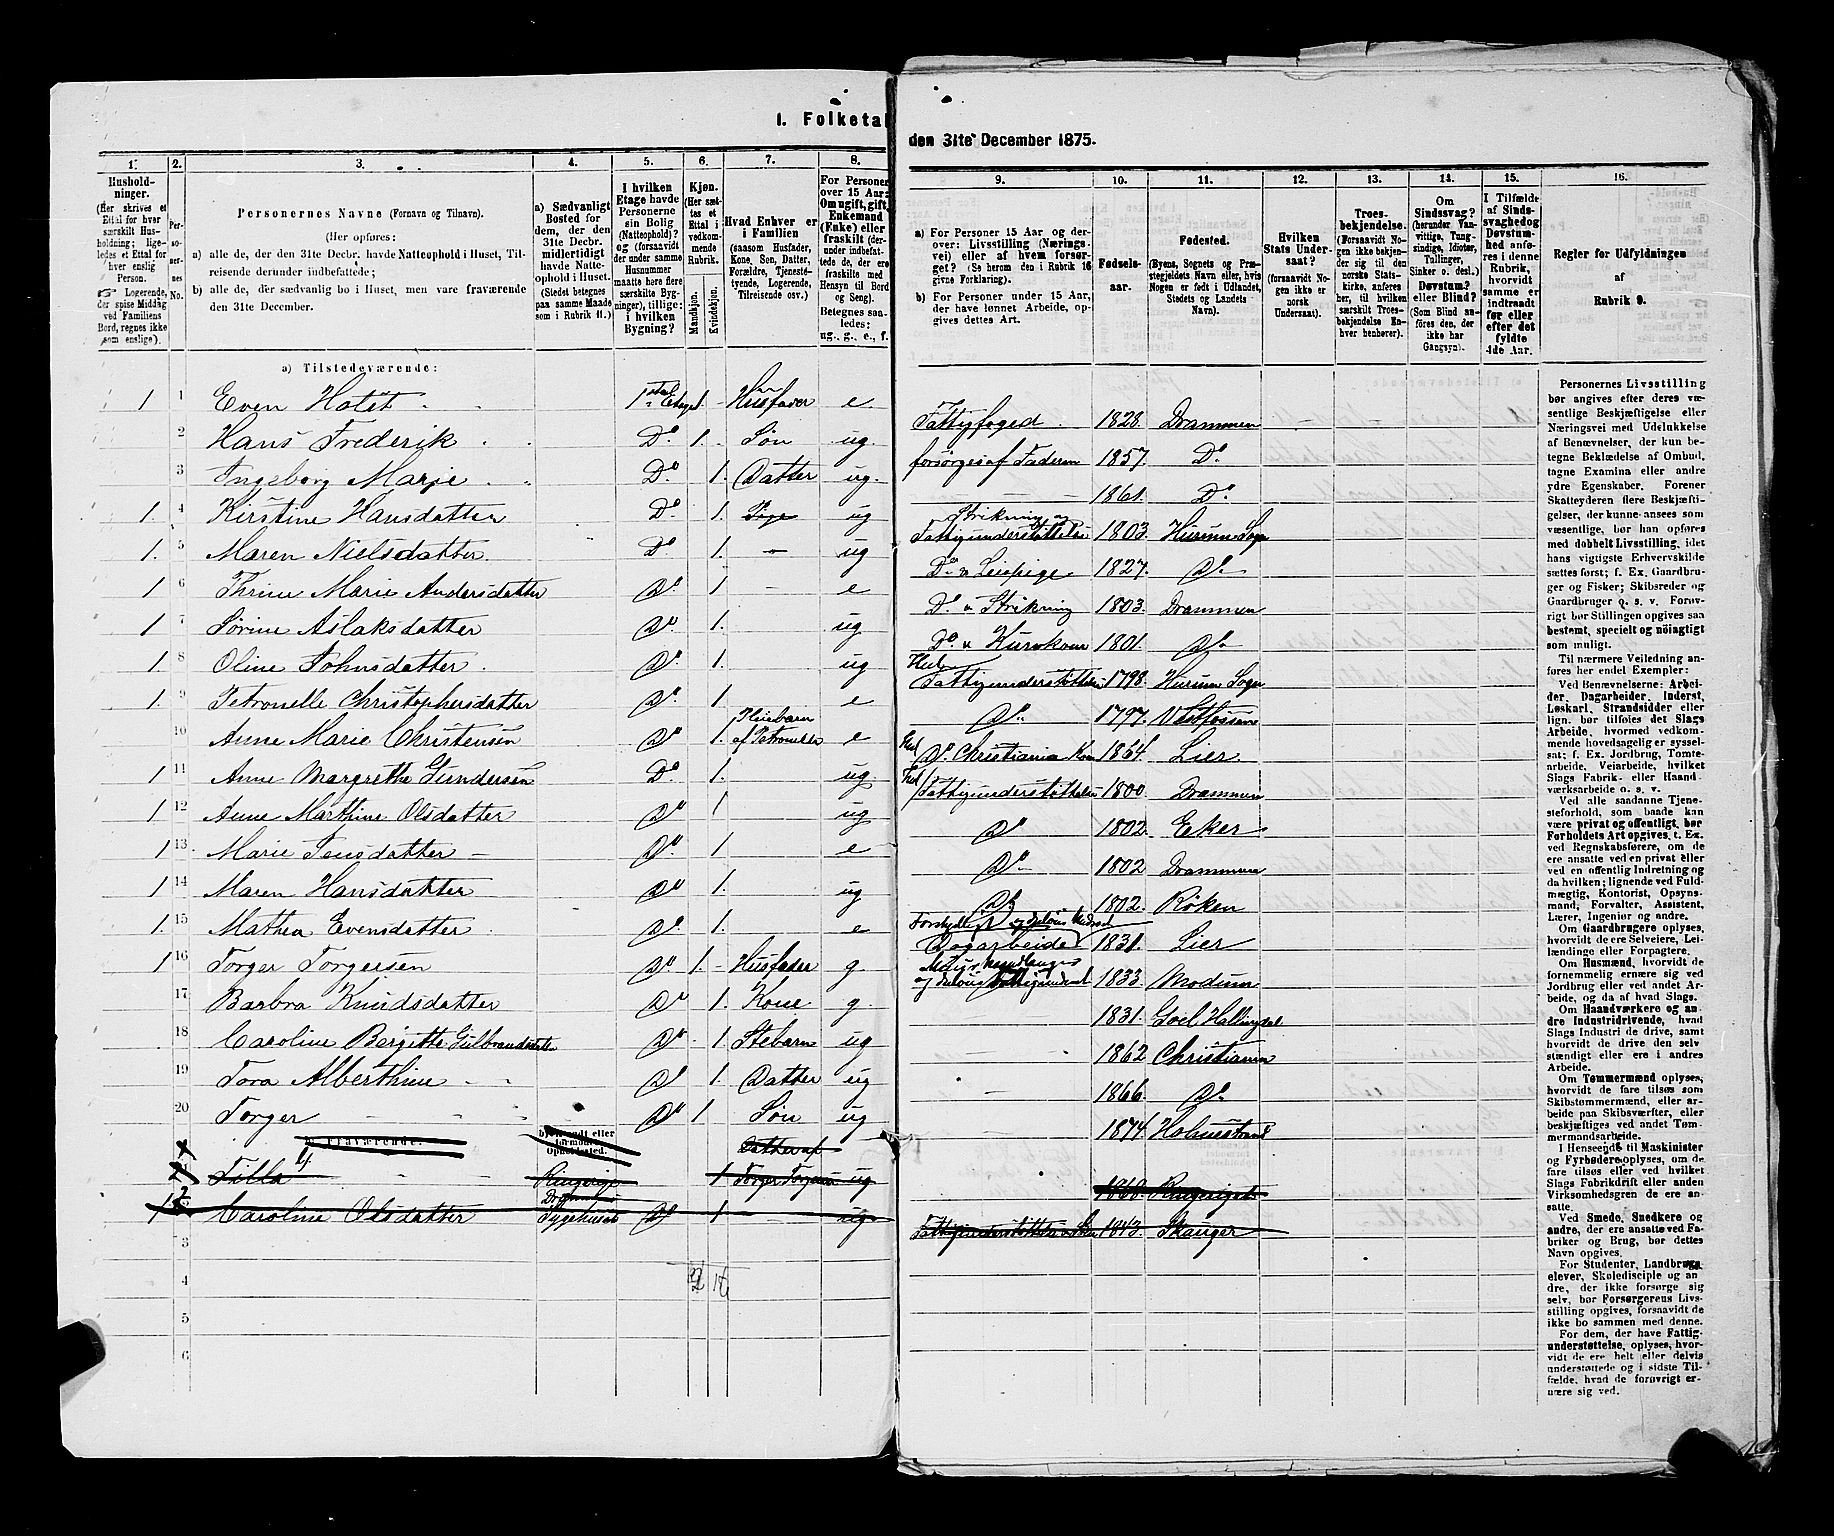 1. Folketal
den 31te December 1875.
1. 2. 3. 4. 5. 6. 7. 8.
9. 10. 11. 12. 13. 14. 15. 16.
Hushold-
ninger.
(Her skrives et
Ettal for hver
særskilt Hus-
holdning; lige-
ledes et Ettal for
hver enslig
Person.
Logerende,
der spise Middag
ved Familiens
Bord, regnes ikke
som enslige).
Per-
so-
ner-
nes
No.
Personernes Navne (Fornavn og Tilnavn).
(Her opføres:
a) alle de, der den 31te Decbr. havde Natteophold i Huset, Til-
reisende derunder indbefattede;
b) alle de, der sædvanlig bo i Huset, men vare fraværende
den 31te December.
a) Sædvanligt
Bosted for
dem, der den
31te Decbr.
midlertidigt
havde Natte-
ophold i Huset.
(Stedet betegnes
paa samme Maade
som i Rubrik 11.)
I hvilken
Etage havde
Personerne
sin Bolig
(Natteophold)?
og (forsaavidt
der under samme
Husnummer
maatte høre flere
særskilte Byg-
ninger), tillige:
i hvilken
Bygning?
Kjøn.
(Her sæt-
tes et
Ettal i
vedkom-
mende
Rubrik.
Mandkjøn.
Kvindekjøn.
Hvad Enhver er
i Familien
(saasom Husfader,
Kone, Søn, Datter,
Forældre, Tjeneste-
tyende, Logerende,
Tilreisende osv.)
For Personer
over 15 Aar:
Om ugift, gift,
Enkemand
(Enke) eller
fraskilt (der-
under indbefat-
tede de, der ere
fraskilte med
Hensyn til Bord
og Seng).
Betegnes saa-
ledes:
ug., g., e., f.
a) For Personer 15 Aar og der-
over: Livsstilling (Nærings-
vei) eller af hvem forsør-
get? (Se herom den i Rubrik 16
givne Forklaring).
b) For Personer under 15 Aar,
der have lønnet Arbeide, op-
gives dettes Art.
Fødsels-
aar.
Fødested.
(Byens, Sognets og Præ-
stegjeldets Navn eller, hvis
Nogen er født i Udlandet,
Stedets og Landets
Navn).
Hvilken
Stats Under-
saat?
(forsaavidt No-
gen ikke er
norsk
Undersaat).
Troes-
bekjendelse.
(Forsaavidt No-
gen ikke bekjen-
der sig til den
norske Stats-
kirke, anføres
her, til hvilken
særskilt Troes-
bekjendelse En-
hver henhører).
Om
Sindssvag?
(herunder Van-
vittige, Tung-
sindige, Idioter,
Tullinger,
Sinker o. desl.)
Døvstum?
eller Blind?
(Som Blind an-
føres den, der
ikke har
Gangsyn).
I Tilfælde
af Sinds-
svaghed og
Døvstum-
hed anfø-
res i denne
Rubrik,
hvorvidt
samme er
indtraadt
før eller
efter det
fyldte
4de Aar.
Regler for Udfyldningen
af
Rubrik 9.
a) Tilstedeværende:
1 1 Even Holst 1ste Etage 1 Husfader e. Fattigfoged 1828 Drammen
2 Hans Frederik Do. 1. Søn ug. forsørges af Faderen 1857. Do.
3 Ingeborg Marie Do. 1. Datter ug. 1861. Do.
1. 4 Kirstine Hansdatter Do. 1. Pige ug Strikning og Fattigunderstøttelse 1803. Hurum Sogn
1. 5 Maren Nielsdatter Do. 1. ug Do. 1827. Do.
1 6 Thrine Marie Andersdatter Do. 1. e Do. & Strikning 1803. Drammen
1 7 Sørine Aslaksdatter Do. 1. ug Do. 1801. Do.
1. 8 Oline Johnsdatter Do. 1. ug Hel Fattigunderstøttelse 1798. Hurum Sogn
1 9 Petronelle Christophersdatter Do. 1 e Do. 1797. Vestfossen
10 Anne Marie Christensen Do. 1. Pleiebarn af Petronelle e Do. Christiania Kom 1864. Lier
1 11 Anne Margrethe Gundersen Do. 1. ug. Hel Fattigunderstøttelse 1800. Drammen
1 12 Anne Marthine Olsdatter Do. 1 ug Do. 1802. Eker
1 13 Marie Jensdatter Do. 1 e Do. 1802 Drammen
1 14 Maren Hansdatter Do. 1. ug Do. 1802. Røken
1. 15 Mathea Evensdatter Do. 1. e Dagarbeide 1831. Lier
1 16 Torger Torgersen Do. 1. Husfader g. 1833. Modum
17 Barbra Knudsdatter Do. 1 Kone g. 1831. Goel Hallingdal
18 Caroline Bergitte Gulbrandsdatter Do. 1 Stebarn ug 1862 Christiania
19 Tora Alberthine Do. 1. Datter ug 1866. Do.
20 Torger Do. 1 Søn ug 1874. Holmestrand
b) Fraværende.
b) Kjendt eller
formodet
Opholdssted.
Tilla Ringerige 1 Datter af Torger Torgersen ug 1868. Ringeriget
1 2 Caroline Olsdatter Drammens Sygehus Do. 1 ug Fattigunderstøttelse 1843. Skauger
3
4 2 18
5
6
Personernes Livsstilling
bør angives efter deres væ-
sentlige Beskjæftigelse eller
Næringsvei med Udelukkelse
af Benævnelser, der kun be-
tegne Beklædelse af Ombud,
tagne Examina eller andre
ydre Egenskaber. Forener
Skatteyderen flere Beskjæfti-
gelser, der kunne ansees som
væsentlige, bør han opføres
med dobbelt Livsstilling, idet
hans vigtigste Erhvervskilde
sættes først; f. Ex. Gaardbru-
ger og Fisker; Skibsreder og
Gaardbruger o. s. v. Forøv-
rigt bør Stillingen opgives saa
bestemt, specielt og nøiagtigt
som muligt.
Til nærmere Veiledning an-
føres her endel Exempler:
Ved Benævnelserne: Arbei-
der, Dagarbeider, Inderst,
Løskarl, Strandsidder eller
lign. bør tilføies det Slags
Arbeide, hvormed vedkom-
mende hovedsagelig er syssel-
sat; f. Ex. Jordbrug, Tomte-
arbeide, Veiarbeide, hvilket
Slags Fabrik- eller Haand-
værksarbeide o. s. v.
Ved alle saadanne Tjene-
steforhold, som baade kan
være privat og offentligt, bør
Forholdets Art opgives, t. Ex.
ved Regnskabsførere, om de
ere ansatte ved en privat eller
ved en offentlig Indretning og
da hvilken; lignende ved Fuld-
mægtig, Kontorist, Opsyns-
mand, Forvalter, Assistent,
Lærer, Ingeniør og andre.
Om Gaardbrugere oplyses,
hvorvidt de ere Selveiere, Lei-
lændinge eller Forpagtere.
Om Husmænd, hvorvidt de
fornemmelig ernære sig ved
Jordbrug eller ved andet Ar-
beide, og da af hvad Slags.
Om Haandværkere og an-
dre Industridrivende, hvad
Slags Industri de drive, samt
hvorvidt de drive den selv-
stændigt eller ere i andres
Arbeide.
Om Tømmermænd oplyses,
hvorvidt de fare tilsøs som
Skibstømmermænd, eller ar-
beide paa Skibsværfter, eller
beskjæftiges ved andet Tøm-
mermandsarbeide.
I Henseende til Maskinister
og Fyrbødere oplyses, om de
fare tilsøs eller ved hvilket
Slags Fabrikdrift eller anden
Virksomhedsgren de ere an-
satte.
Ved Smede, Snedkere og
andre, der ere ansatte ved Fa-
briker og Brug, bør dettes
Navn opgives.
For Studenter, Landbrugs-
elever, Skoledisciple og an-
dre, der ikke forsørge sig
selv, bør Forsørgerens Livs-
stilling opgives, forsaavidt de
ikke bo sammen med denne.
For dem, der have Fattig-
understøttelse, oplyses, hvor-
vidt de ere helt eller delvis
understøttede og i sidste Til-
fælde, hvad de forøvrigt er-
nære sig ved.